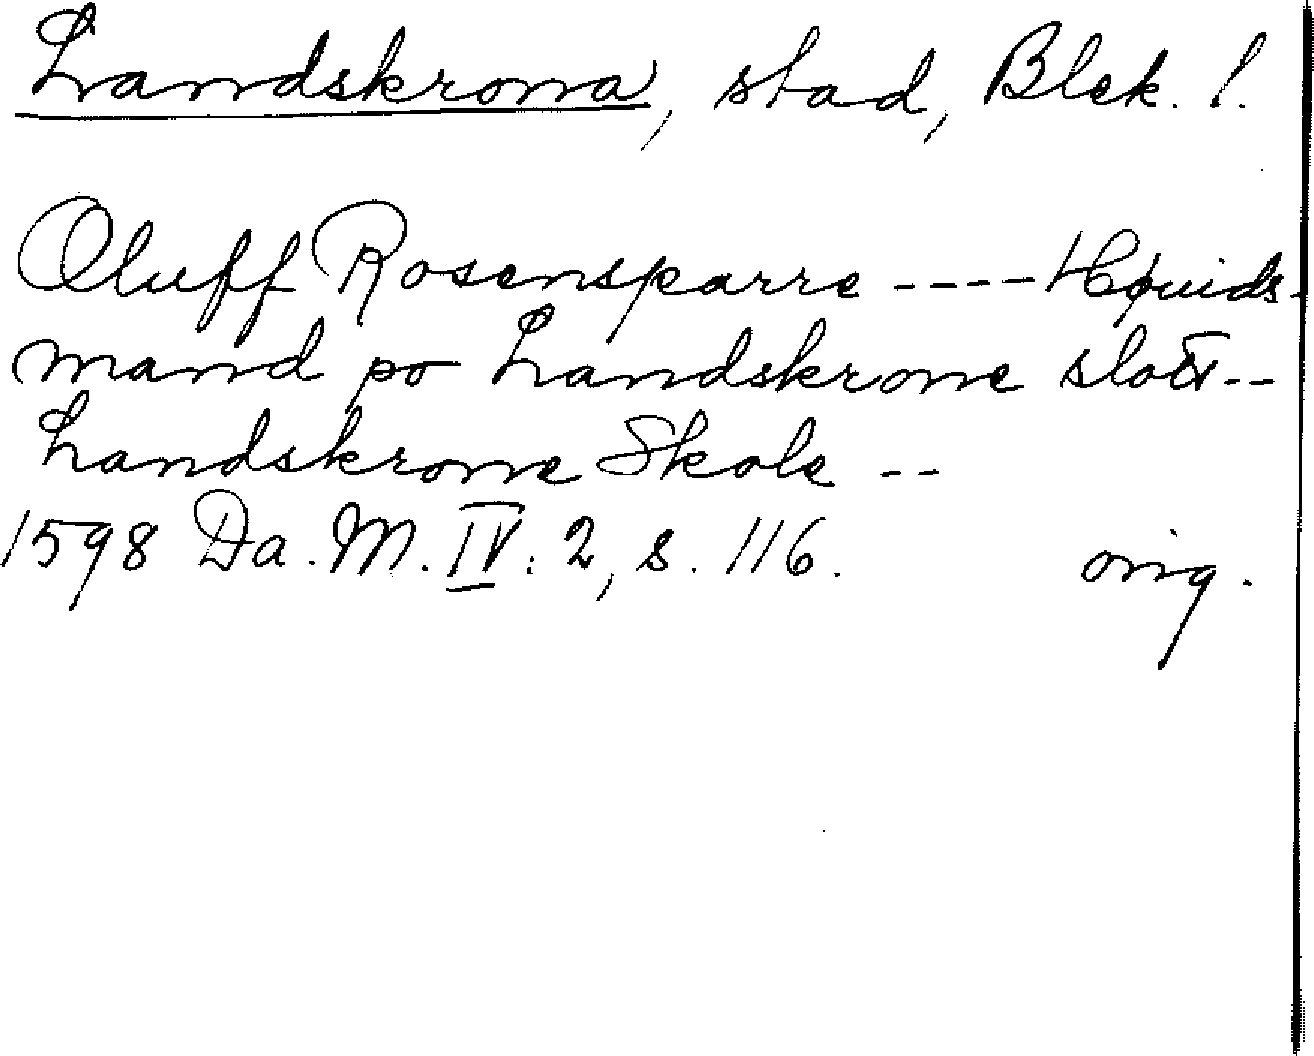 Landskrona, stad, Blek. l.
Oluff Rosensparre ---- Høuids-
mand po Landskrone slott --
Landskrone Skole --
1598 Da. M. IV: 2, s. 116. orig.